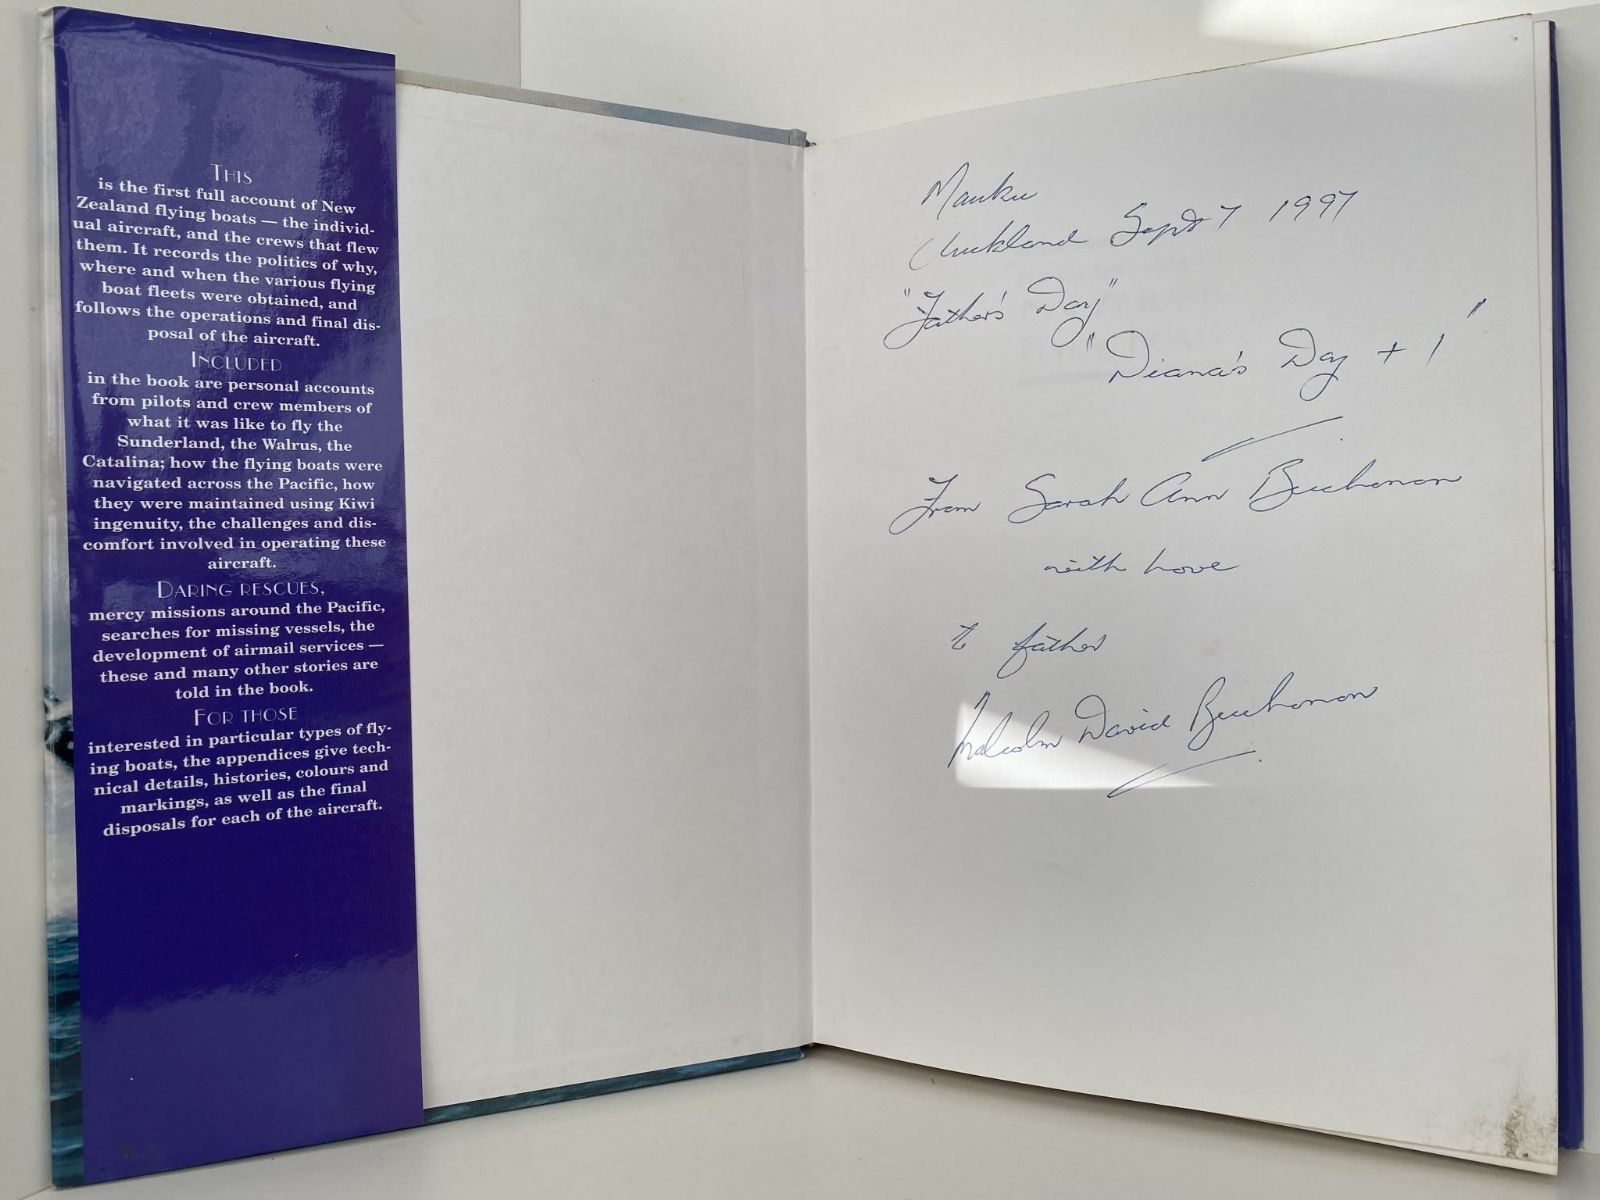 THIS
is the first full account of New
Zealand flying boats — the individ-
ual aircraft, and the crews that flew
them. It records the politics of why,
where and when the various flying
boat fleets were obtained, and
follows the operations and final dis-
posal of the aircraft.
INCLUDED
in the book are personal accounts
from pilots and crew members of
what it was like to fly the
Sunderland, the Walrus, the
Catalina; how the flying boats were
navigated across the Pacific, how
they were maintained using Kiwi
ingenuity, the challenges and dis-
comfort involved in operating these
aircraft.
DARING RESCUES,
mercy missions around the Pacific,
searches for missing vessels, the
development of airmail services —
these and many other stories are
told in the book.
FOR THOSE
interested in particular types of fly-
ing boats, the appendices give tech-
nical details, histories, colours and
markings, as well as the final
disposals for each of the aircraft.
Mauku
Auckland Sept 7 1997
"Father's Day"
"Diana's Day + 1"
From Sarah Ann Buchanan
with love
to father
Malcolm David Buchanan